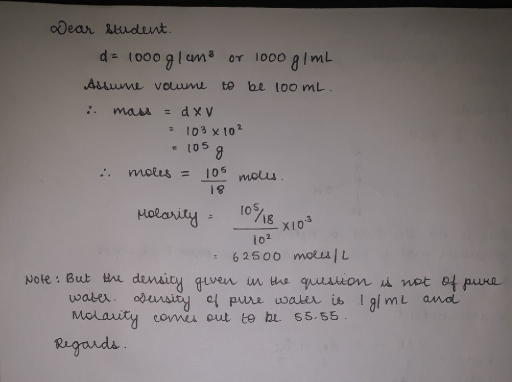 Dear Student.
d = 1000 g/cm³ or 1000 g/mL
Assume volume to be 100 mL.
∴ mass = d x V
= 10³ x 10²
= 10⁵ g
∴ moles = 10⁵/18 moles.
Molarity = (10⁵/18)/10² x 10⁻³
= 62500 moles/L
Note: But the density given in the question is not of pure
water. Density of pure water is 1 g/mL and
Molarity comes out to be 55.55.
Regards.